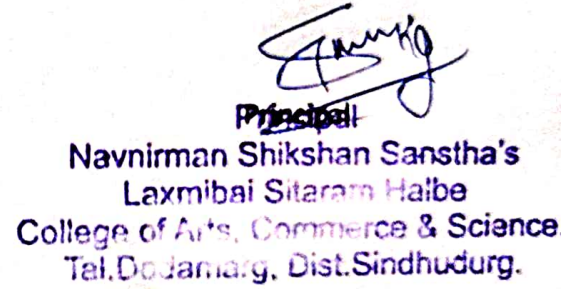 Principal
Navnirman Shikshan Sanstha's
Laxmibai Sitaram Halbe
College of Arts, Commerce & Science.
Tal.Dodamarg, Dist.Sindhudurg.